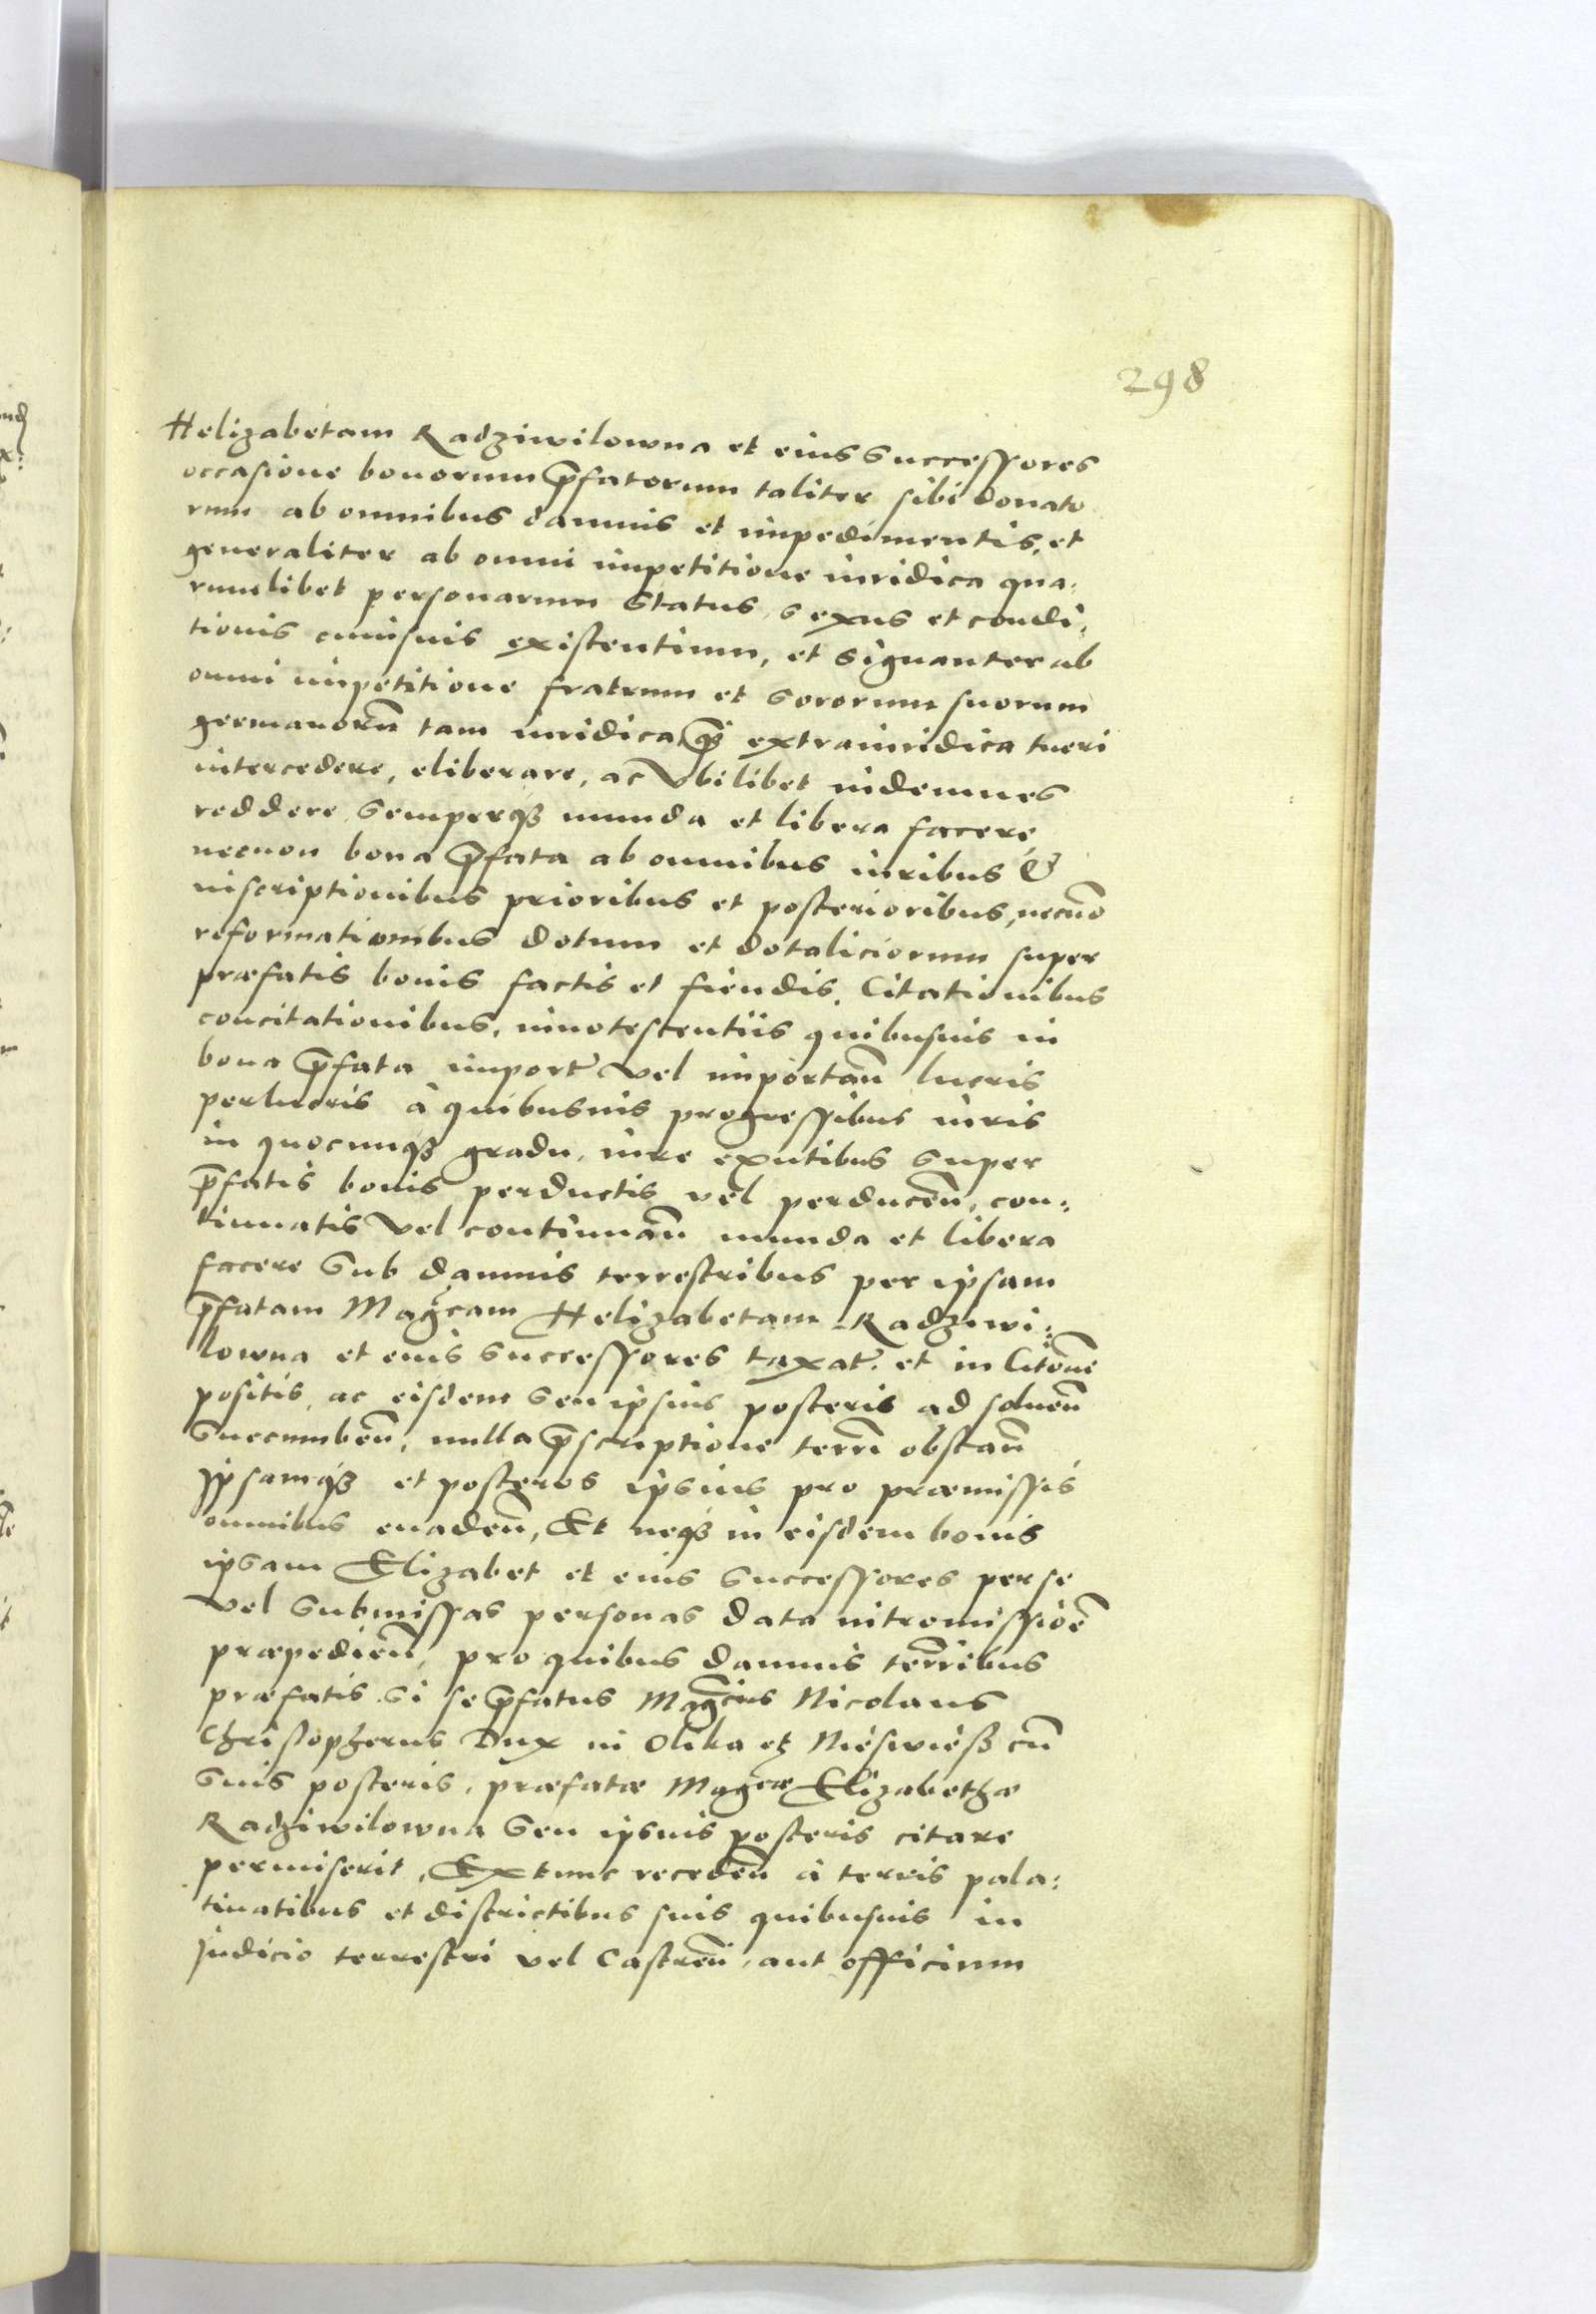 298
Helizabetam Radziwilowna et eius successores
occasione bonorum p̄fatorum taliter sibi donato
rum ab omnibus damnis et impedimentis, et
generaliter ab omni impetitione iuridica qua:
rumlibet personarum status, sexus et condi:
tionis cuiusuis existentium, et signanter ab
omni impetitione fratrum et sororum suorum
germanorū tam iuridica, q̄ extraiuridica tueri
intercedere, eliberare, ac vbilibet indemnes
reddere, semperqȝ munda et libera facere,
necnon bona p̄fata ab omnibus iuribus &
inscriptionibus prioribus et posterioribus, necnō
reformationibus dotum et dotaliciorum super
præfatis bonis factis et fiendis, Citationibus
concitationibus, innotescentiis quibusuis in
bona p̄fata import̄ vel importañ lucris
perlucris à quibusuis progressibus iuris
in quocunqȝ gradu, iure exutibus super
p̄fatis bonis perductis vel perduceñ, con:
tinuatis vel continuañ munda et libera
facere sub damnis terrestribus per ipsam
p̄fatam Mag̃cam Helizabetam Radziwi:
lowna et eius successores taxat̄. et in Citōne
positis, ac eisdem seu ipsius posteris ad solueñ
succumbeñ, nulla p̄scriptione terrī obstañ
ipsamqȝ et posteros ipsius pro præmissis
omnibus euadeñ, Et neqȝ in eisdem bonis
ipsam Elizabet et eius successores per se
vel submissas personas data intromissiōe
præpedieñ, pro quibus damnis terr̄ibus
præfatis si se p̄fatus Mag̃cus Nicolaus
Christopherus Dux in Olika et Nieswieß cū
suis posteris, præfatæ Mag̃cæ Elizabethæ
Radziwilowna seu ipsius posteris citare
permiserit, Extunc recedeñ à terris pala:
tinatibus et districtibus suis quibusuis in
Judicio terrestri vel Castreñ, aut officium